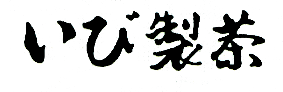 いび製茶